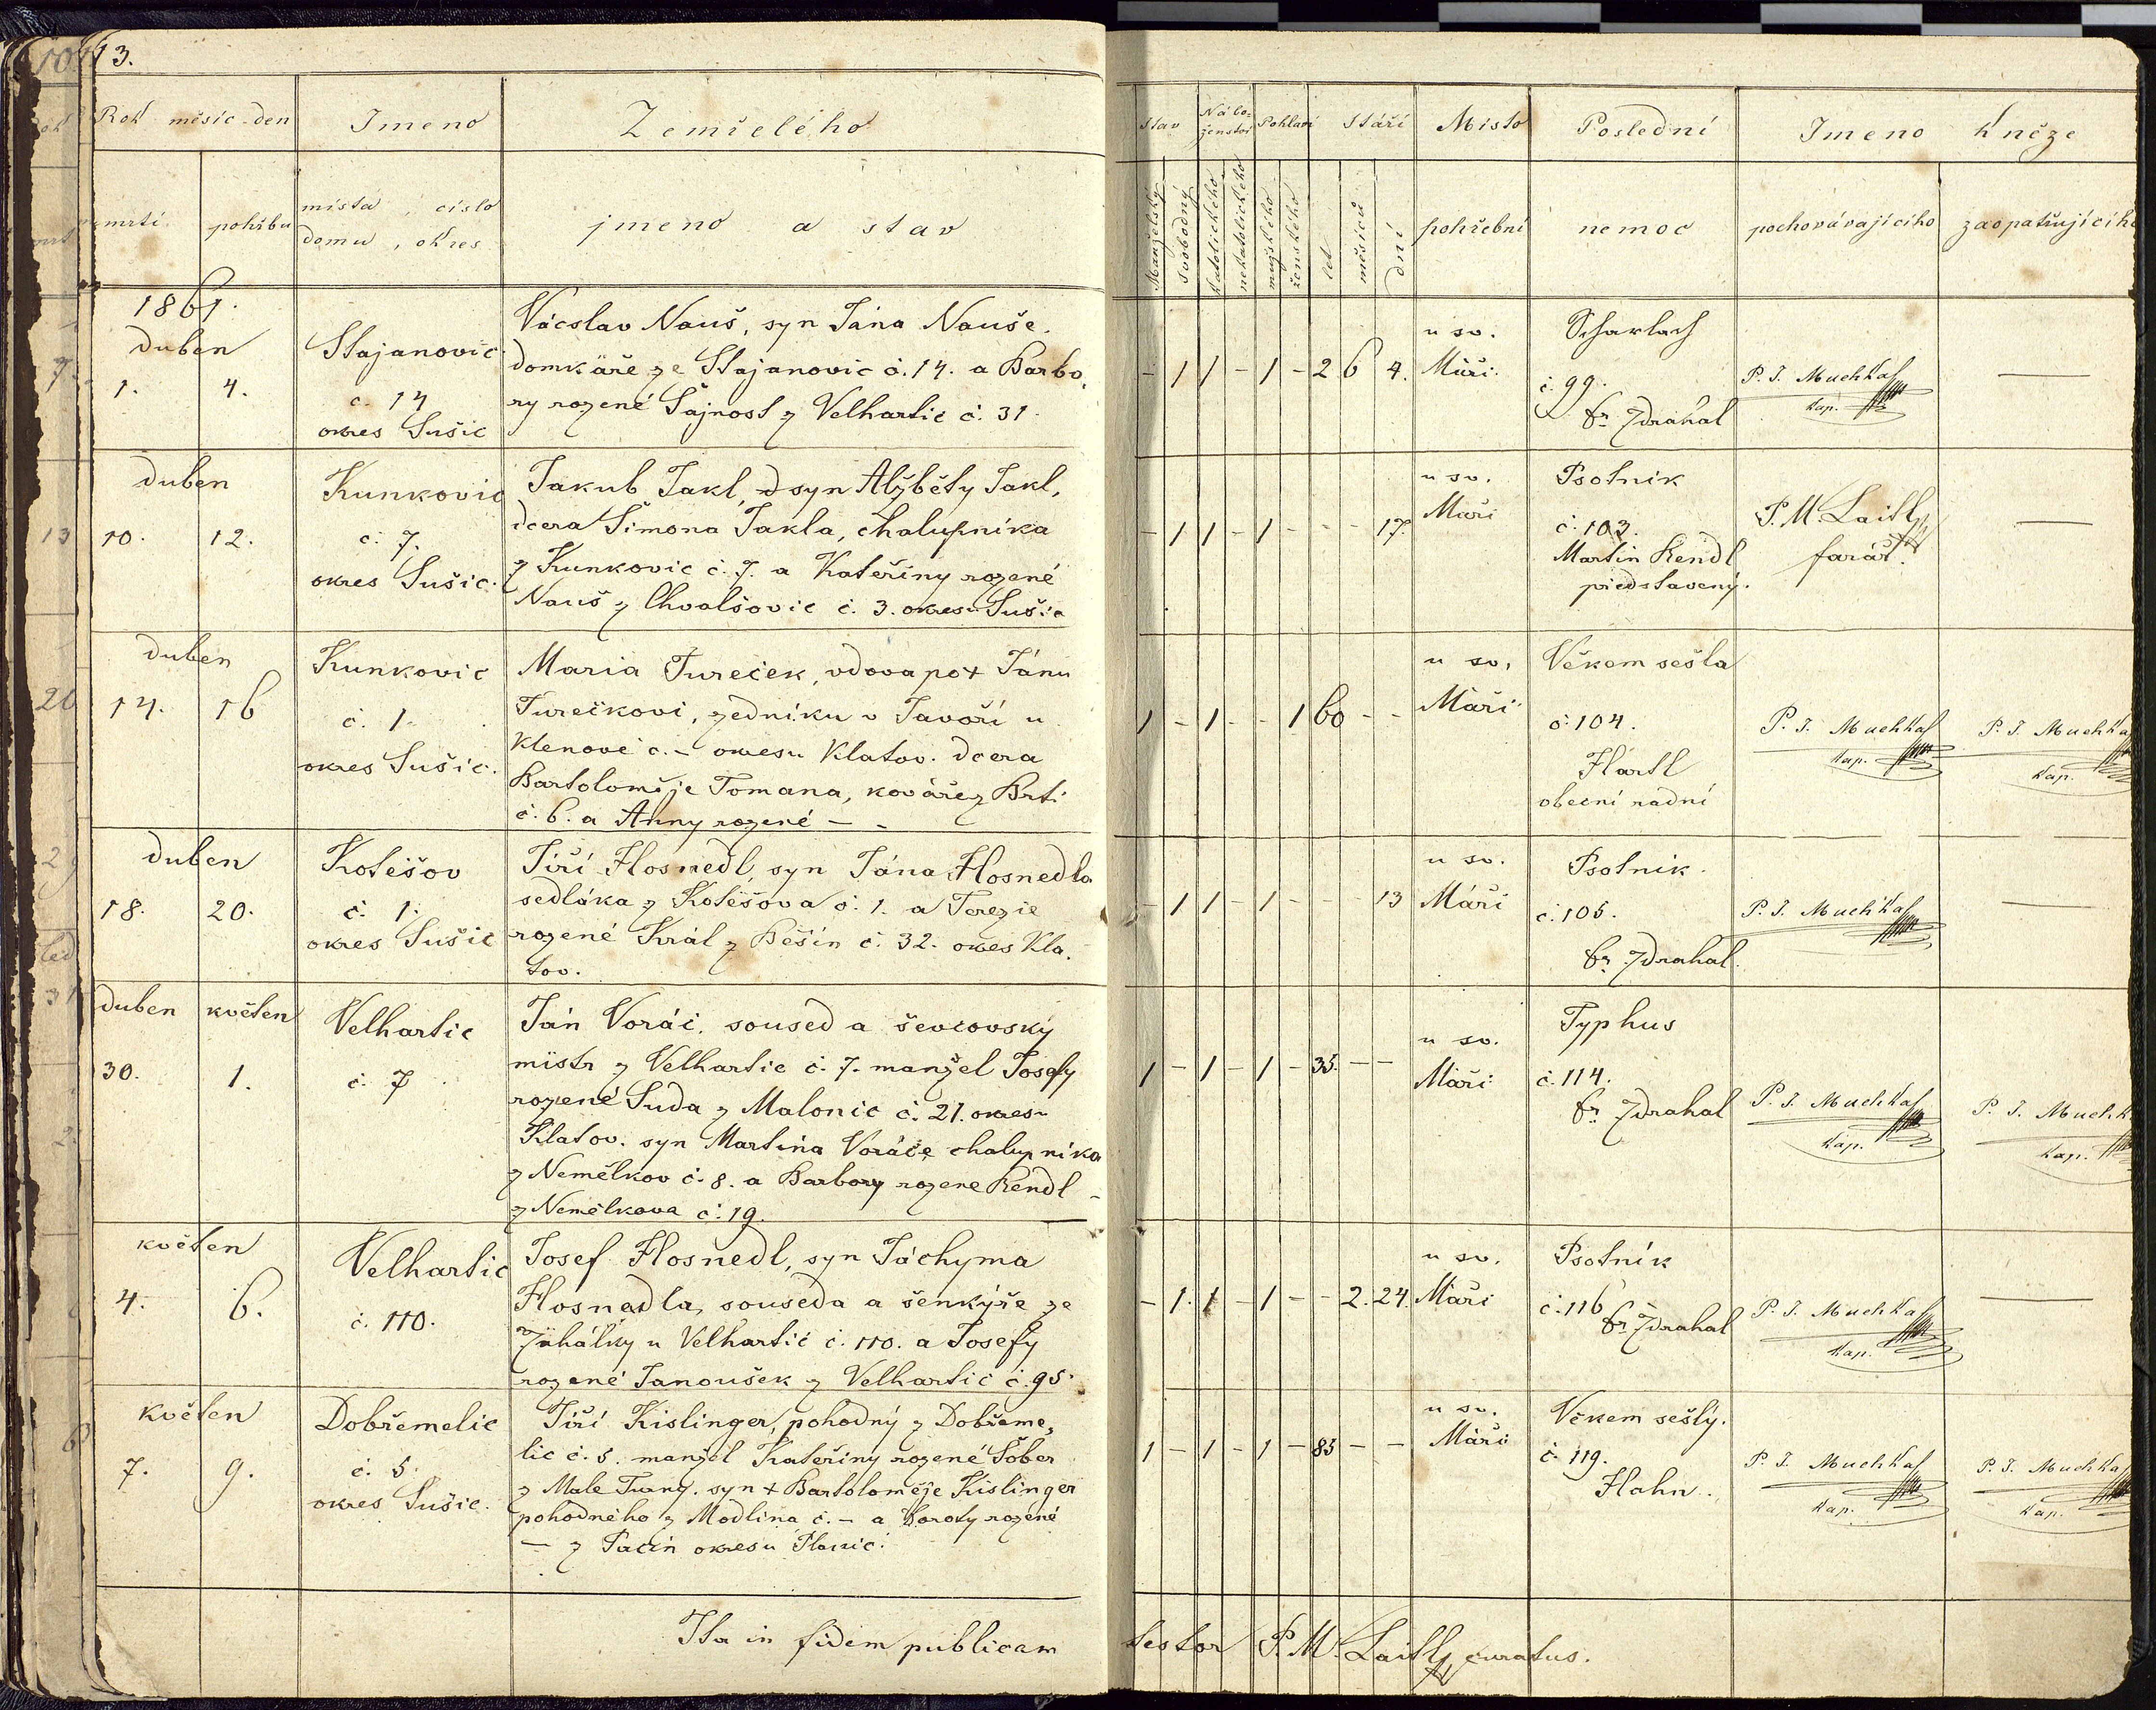 13.
Rok měsíc den Jmeno Zemřelého
úmrtí pohřbu místa, číslo
domu, okres jmeno a stav
Stav Nábo-
ženství Pohlaví Stáří Místo Poslední Jmeno kněze
Manželský svobodný katolického nekatolického mužského ženského let měsíců dní pohřební nemoc pochovávajícího zaopatřujícího
1861.
duben
1. 4.
Stajanovic
č. 14
okres Sušic
Vácslav Nauš, syn Jána Nauše
domkáře ze Stajanovic č. 14. a Barbo,
ry rozené Šajnost z Velhartic č. 31.
- 1 1 - 1 - 2 6 4.
u sv.
Máří
Scharlach
č. 99.
Zdrahal
P. J. Muchka
kap.
—
duben
10. 12.
Kunkovic
č. 7.
okres Sušic.
Jakub Jakl, syn Alžběty Jakl,
dcera Šimona Jakla, chalupníka
z Kunkovic č. 7. a Kateřiny rozené
Nauš z Chvalšovic č. 3. okresu Sušic
- 1 1 - 1 - - - 17.
u sv.
Máří
Psotník
č. 103.
Martin Rendl
představený.
P. M. Laitl
farář.
—
duben
14. 16
Kunkovic
č. 1.
okres Sušic.
Maria Tureček, vdova po + Jánu
Turečkovi, zedníku v Javoří u
Klenové č. - okresu Klatov. dcera
Bartoloměje Tomana, kováře z Brtí
č. 6. a Anny rozené - -
1 - 1 - - 1 60 - -
u sv.
Máří
Věkem sešla
č. 104.
Hártl
obecní radní
P. J. Muchka
kap.
P. J. Muchka
kap.
duben
18. 20.
Kotěšov
č. 1.
okres Sušic
Jiří Hosnedl, syn Jána Hosnedla
sedláka z Kotěšova č. 1. a Terezie
rozené Král z Běšín č. 32. okres Kla,
tov.
- 1 1 - 1 - - - 13
u sv.
Máří
Psotník.
č. 105.
Zdrahal.
P. J. Muchka
—
duben květen
30. 1.
Velhartic
č. 7
Ján Voráč, soused a ševcovský
mistr z Velhartic č. 7. manžel Josefy
rozené Suda z Malonic č. 21. okresu
Klatov. syn Martina Voráče chalupníka
z Nemělkov č. 8. a Barbory rozene Rendl
z Nemělkova č. 19.
1 - 1 - 1 - 35. - -
u sv.
Máří
Typhus
č. 114.
Zdrahal
P. J. Muchka
kap.
P. J. Muchk
kap.
květen
4. 6.
Velhartic
č. 110.
Josef Hosnedl, syn Jáchyma
Hosnedla, souseda a šenkýře ze
Záhálky u Velhartic č. 110. a Josefy
rozené Janoušek z Velhartic č. 95.
- 1. 1 - 1 - - 2. 24.
u sv.
Máří
Psotník
č. 116
Zdrahal
P. J. Muchka
kap.
—
květen
7. 9.
Dobřemelic
č. 5.
okres Sušic.
Jiří Kislinger, pohodný z Dobřeme,
lic č. 5. manžel Kateřiny rozené Šober
z Male Turný. syn + Bartoloměje Kislinger
pohodného z Modlína č. - a Doroty rozené
- z Pacin okresu Planic.
1 - 1 - 1 - 85 - -
u sv.
Máří
Věkem sešlý.
č. 119.
Hahn.
P. J. Muchka
kap.
P. J. Muchka
kap.
Ita in fidem publicam testor P. M. Laitl, curatus.